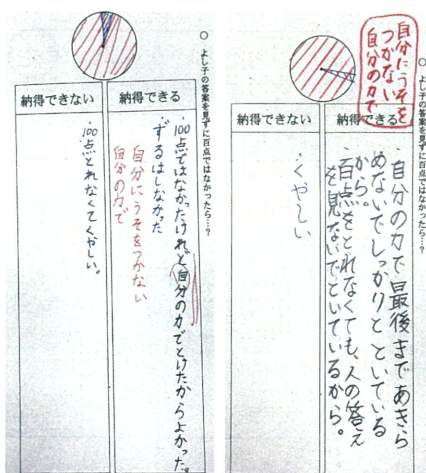 ○ よし子の答案を見ずに百点ではなかったら…?
自分にうそを
つかない
自分の力で
納得できる
・自分の力で最後まであきら
めないでしっかりとといている
から。
・百点をとれなくても、人の答え
を見ないでといているから。
納得できない
・くやしい
○ よし子の答案を見ずに百点ではなかったら…?
納得できる
・100点ではなかったけれど自分の力でとけたからよかった。
ずるはしなかった
自分にうそをつかない
自分の力で
納得できない
・100点とれなくてくやしい。